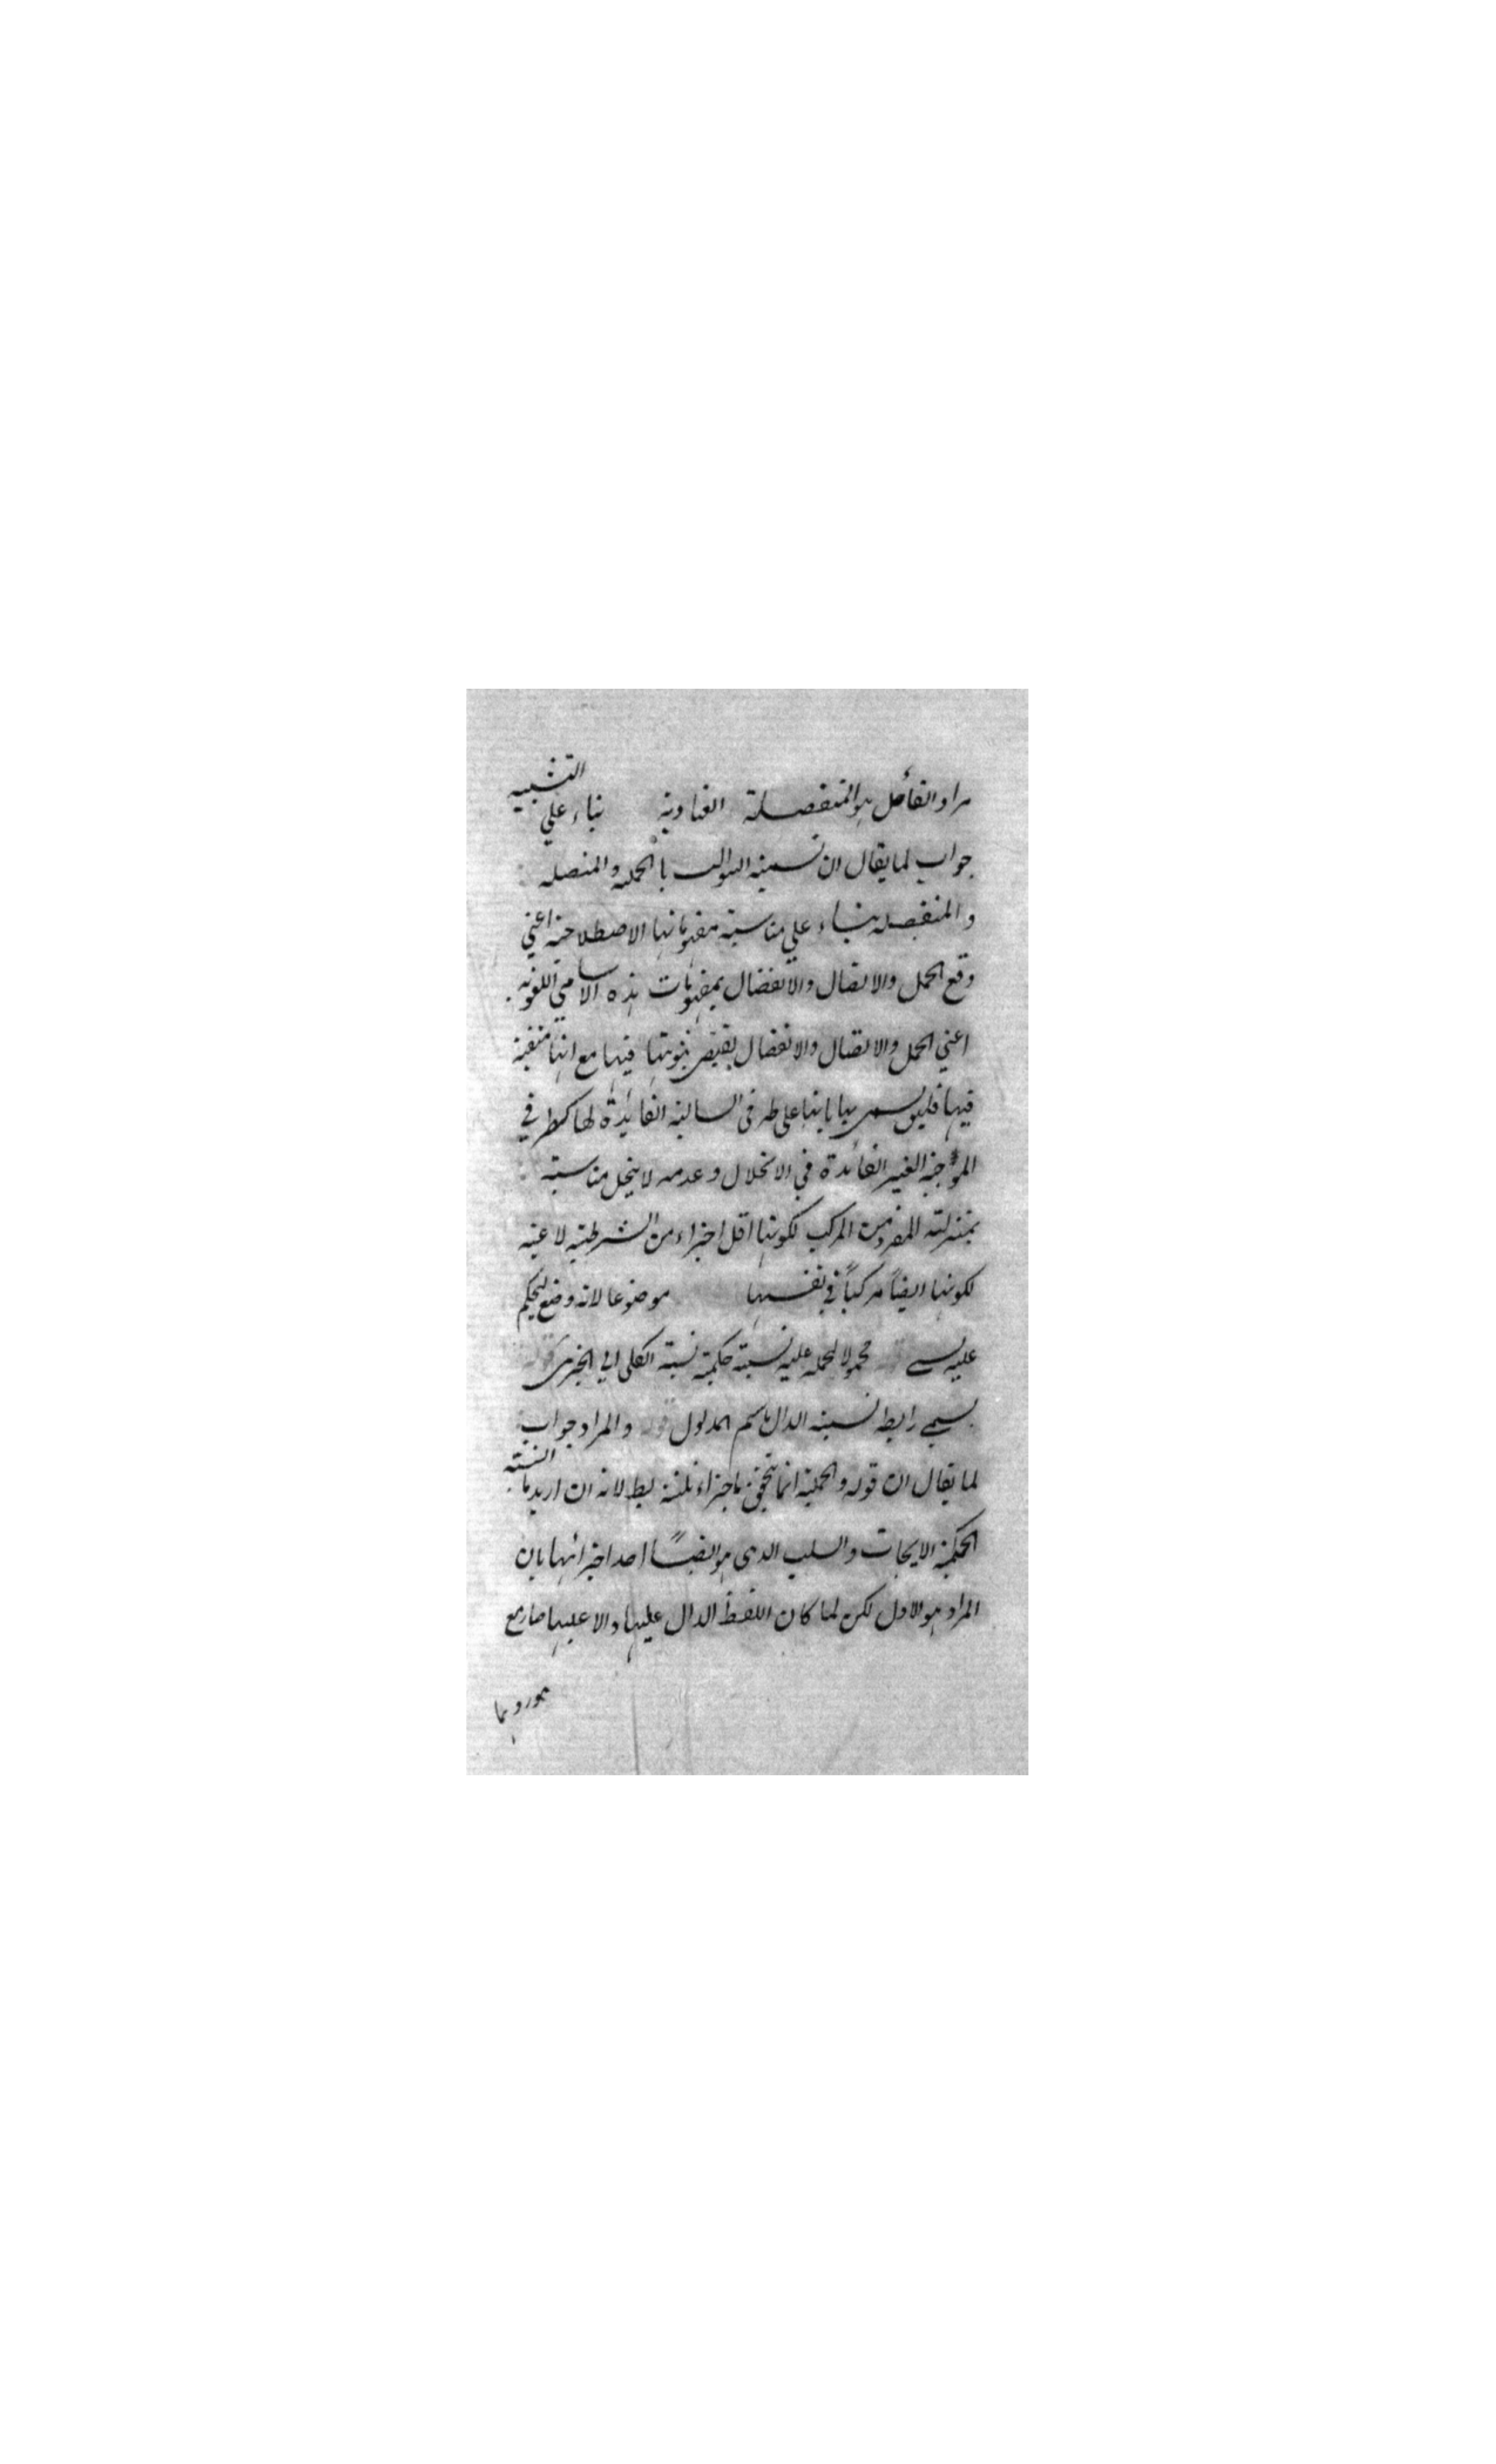 مراد الفاضل هو المنفصلة العنادية بناء علي التشبيه
جواب لما يقال ان تسمية السوالب بالحملية والمتصله
والمنفصله بناء علي مناسبة مفهوماتها الاصطلاحية اعني
وقع الحمل والاتصال والانفصال بمفهومات هذه الاسامي اللغويه
اعني الحمل والاتصال والانفصال يقتضي ثبوتها فيها مع انها منفية
فيها في السالبة لها
الموجبة الغير في الانحلال وعدمه مناسبة
بمنزلته المفرد من المركب لكونها اقل اجزاء من الشرطية لا عينه
لكونها ايضاً مركباً في نفسها موضوعا لانه وضع ليحكم
عليه محمولا لحمله عليه نسبة حكمية نسبة الكلي الي الجزئي
يسمي رابطه تسمية الدال باسم المدلول قوله والمراد جواب
لما يقال ان قوله والحملية انما يتحقق باجزاء ثلثة لانه ان اريد بالنسبة
الحكمية الايجاب والسلب الذي هو ايضاً احد اجزائها بان
المراد هو الاول لكن لما كان اللفظ الدال عليها دالا عليهما صار مع